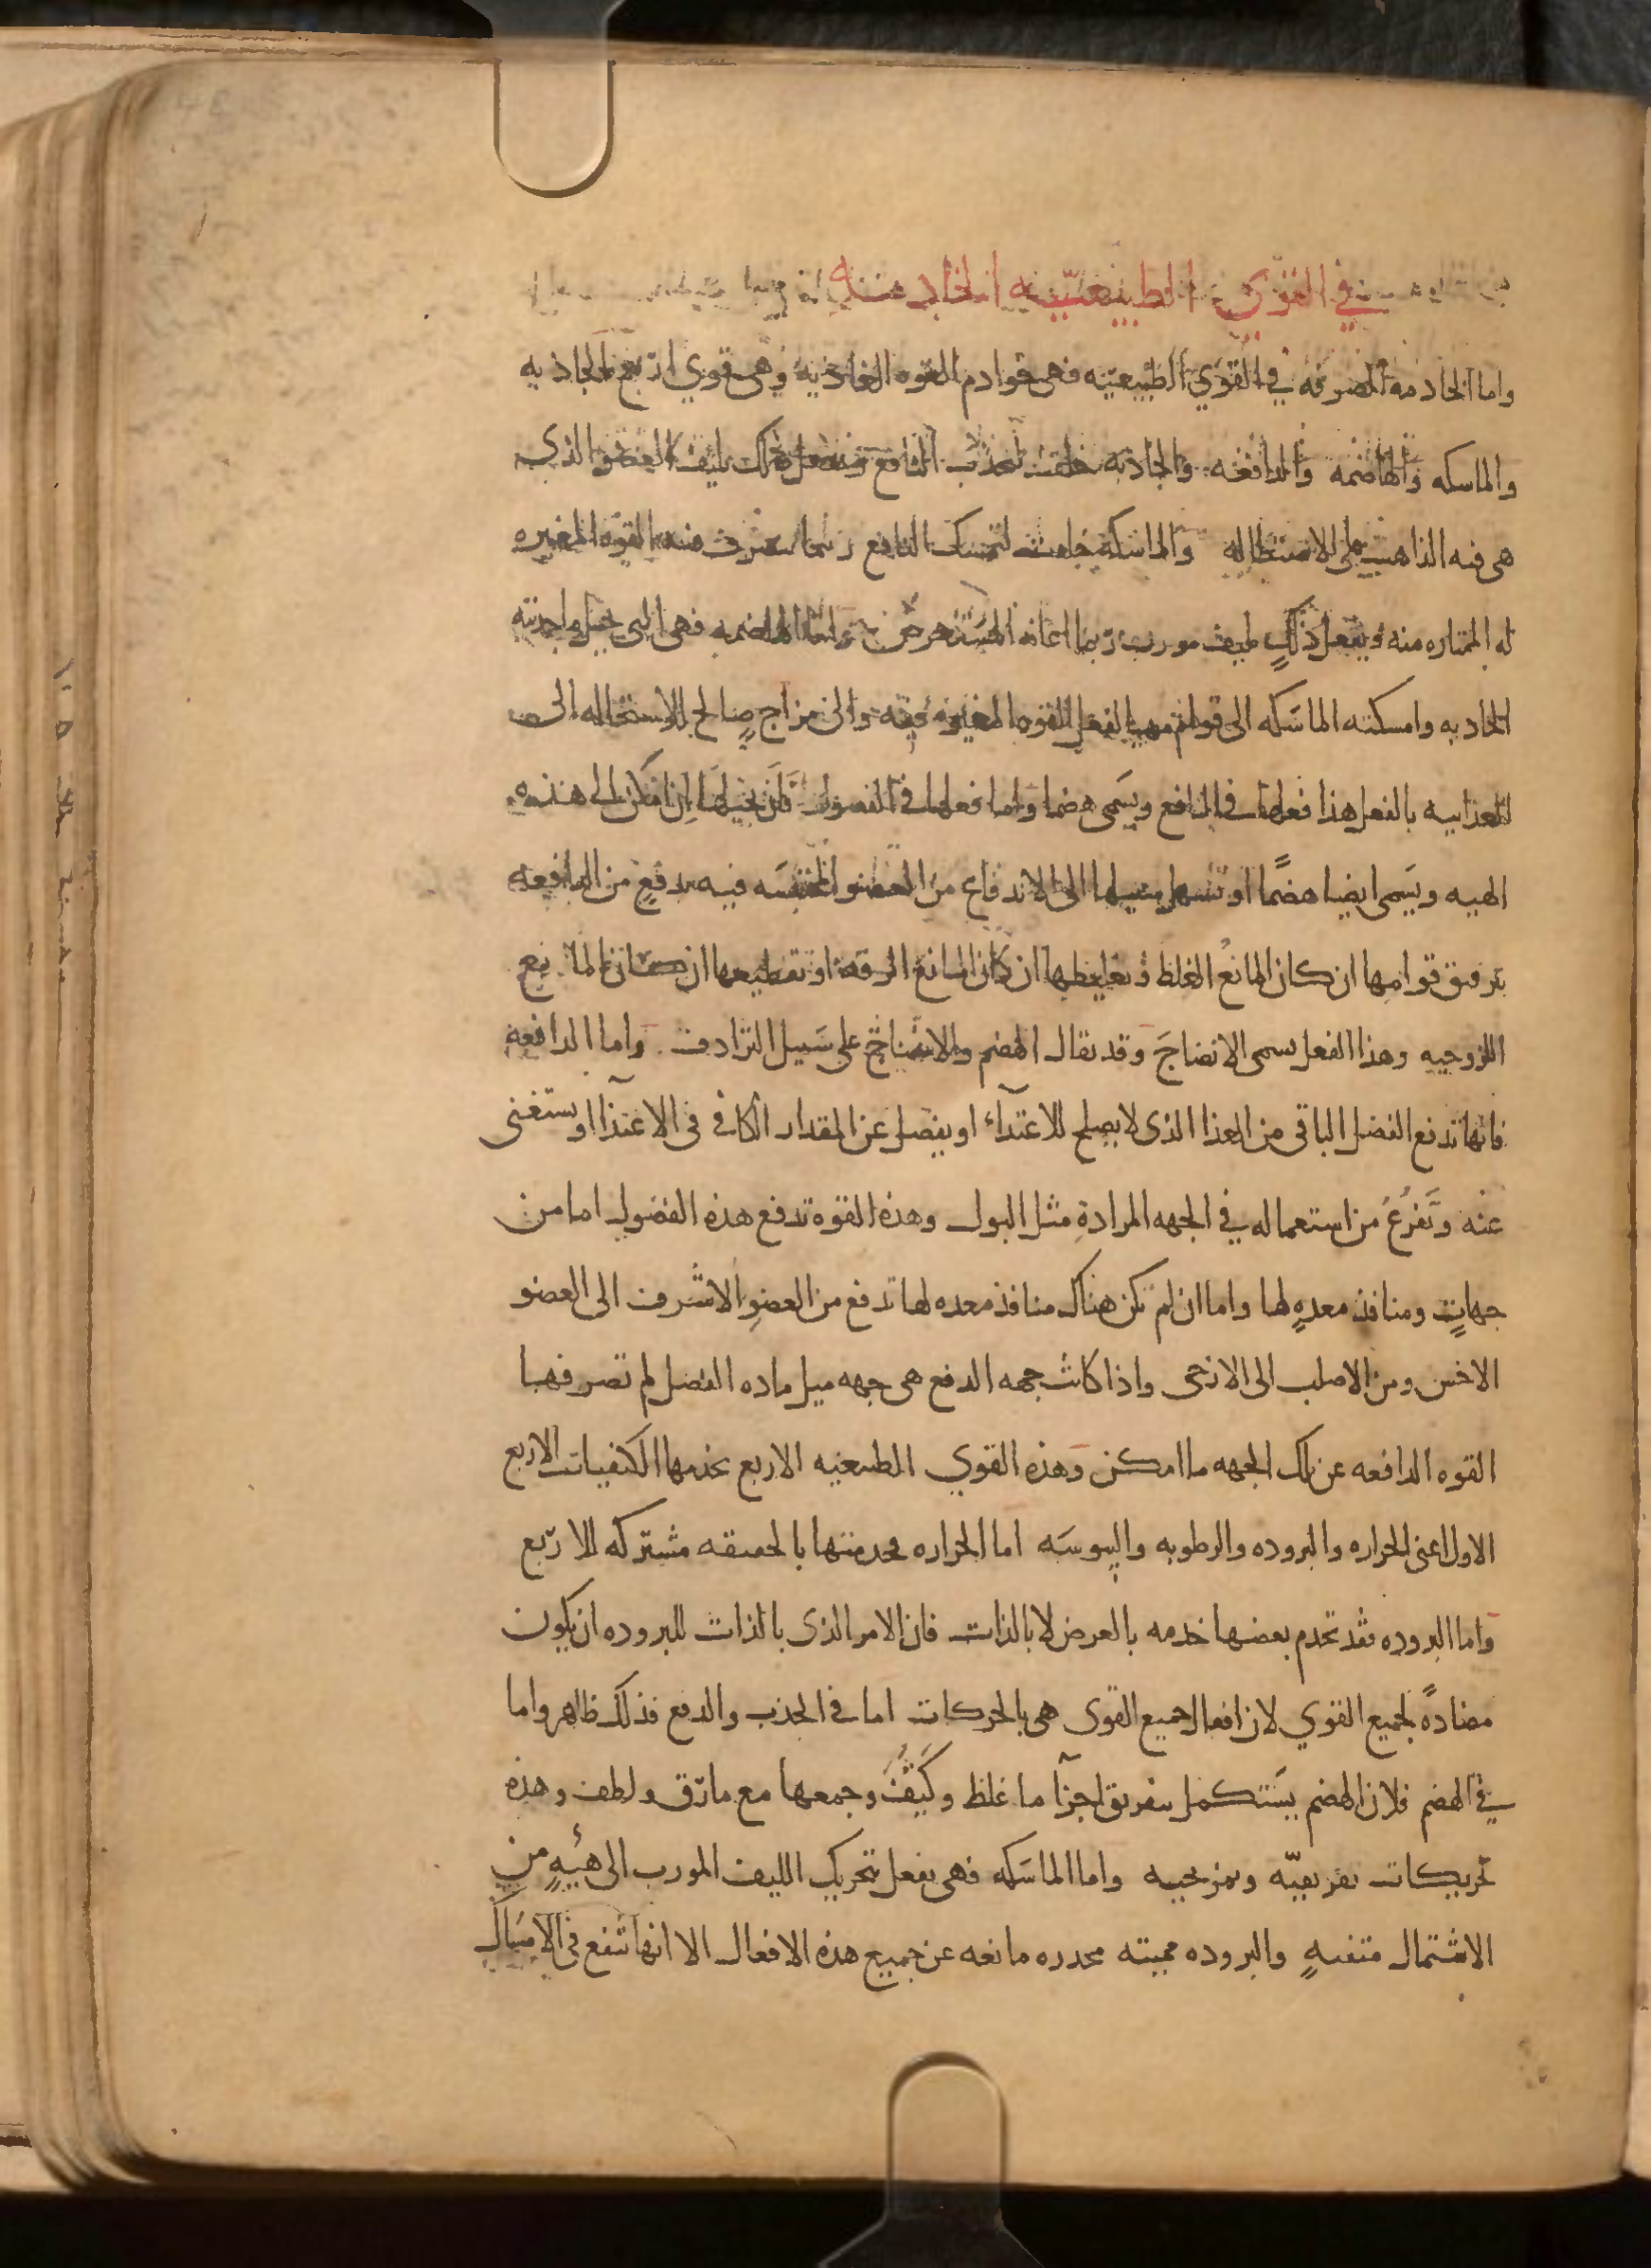 في القوى الطبيعية الخادمة
واما الخادمه الصرفه في القوي الطبيعيه فهى خوادم القوه الغاذيه وهى قوي اربع الجاذبه
والماسكه والهاضمه والدافعه والجاذبه خلقت لتجذب النافع وتفعل ذلك بليف العضو الذي
هى فيه الذاهب على الاستطاله والماسكة خلقت لتمسك النافع ريثما تتصرف فيه القوه المغيره
له الممتاره منه ويفعل ذلك بليف مورب ربما اعانه المستعرض واما الهاضمه فهى التى تحيل ماجذبته
الجاذبه وامسكته الماسَكه الى قوام مهيا لفعل القوه المغيره فيه والى مزاج صالح للاستحاله الى
الغذاييه بالفعل هذا فعلها في النافع ويسَمى هضما واما فعلها في الفضول فان تحيلها ان امكن الى هذه
الهيه ويسَمى ايضا هضمًا او تسهل سبيلها الى الاندفاع من العضو المحتبسَه فيه بدفعٍ من الدافعه
بترقيق قوامها ان كان المانع الغلظ وتغليظها ان كان المانع الرقه او تقطيعها ان كان المانع
اللزوجيه وهذا الفعل يسمى الانضاجَ وقد يقال الهضم والانضاج على سَبيل الترادف واما الدافعه
فانها تدفع الفضل الباقى من الغذا الذى لا يصلح للاغتدآء او يفضل عن المقدار الكافى فى الاغتذآ او يستغنى
عنه وَتَفرُغُ من استعماله في الجهه المرادةِ مثل البول وهذه القوه تدفع هذه الفضول اما من
جهاتٍ ومنافذ معدهٍ لها واما ان لم تكن هناك منافذ معده لها تدفع من العضوِ الاشرف الى العضو
الاخس ومن الاصلب الى الارخى واذا كانت جهه الدفع هى جهه ميل ماده الفضل لم تصرفها
القوه الدافعه عن تلك الجهه ما امكن وهذه القوي الطبيعيه الاربع تخدمها الكيفيات الاربع
الاول اعنى الحراره والبروده والرطوبه واليبوسَه اما الحراره فخدمتها بالحقيقه مشتركه للاربع
واما البروده فقد تخدم بعضها خدمه بالعرض لا بالذات فان الامر الذى بالذات للبروده ان يكون
مضادةً لجميع القوي لان افعال جميع القوى هى بالحركات اما في الجذب والدفع فذلك ظاهر واما
في الهضم فلان الهضم يسَتكمل بتفريق اجزآ ما غلظ وكَثُفَ وجمعها مع ما رَق ولطف وهذه
تحريكات تفريقيّه وتمزيجيه واما الماسَكه فهى يفعل بتحريك الليف المورب الى هيئهٍ من
الاشتمال متقنهٍ والبروده مميته مخدره مانعه عن جميع هذه الافعال الا انها تنفع في الامسَاك